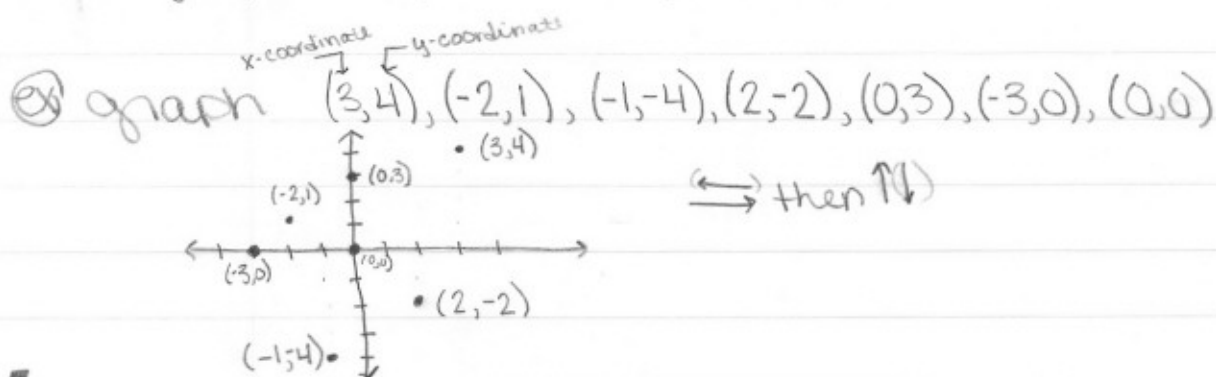 x-coordinate y-coordinate
ex graph (3,4), (-2,1), (-1,-4), (2,-2), (0,3), (-3,0), (0,0)
(3,4)
(0,3)
(-2,1)
then
(-3,0)
(0,0)
(2,-2)
(-1,-4)